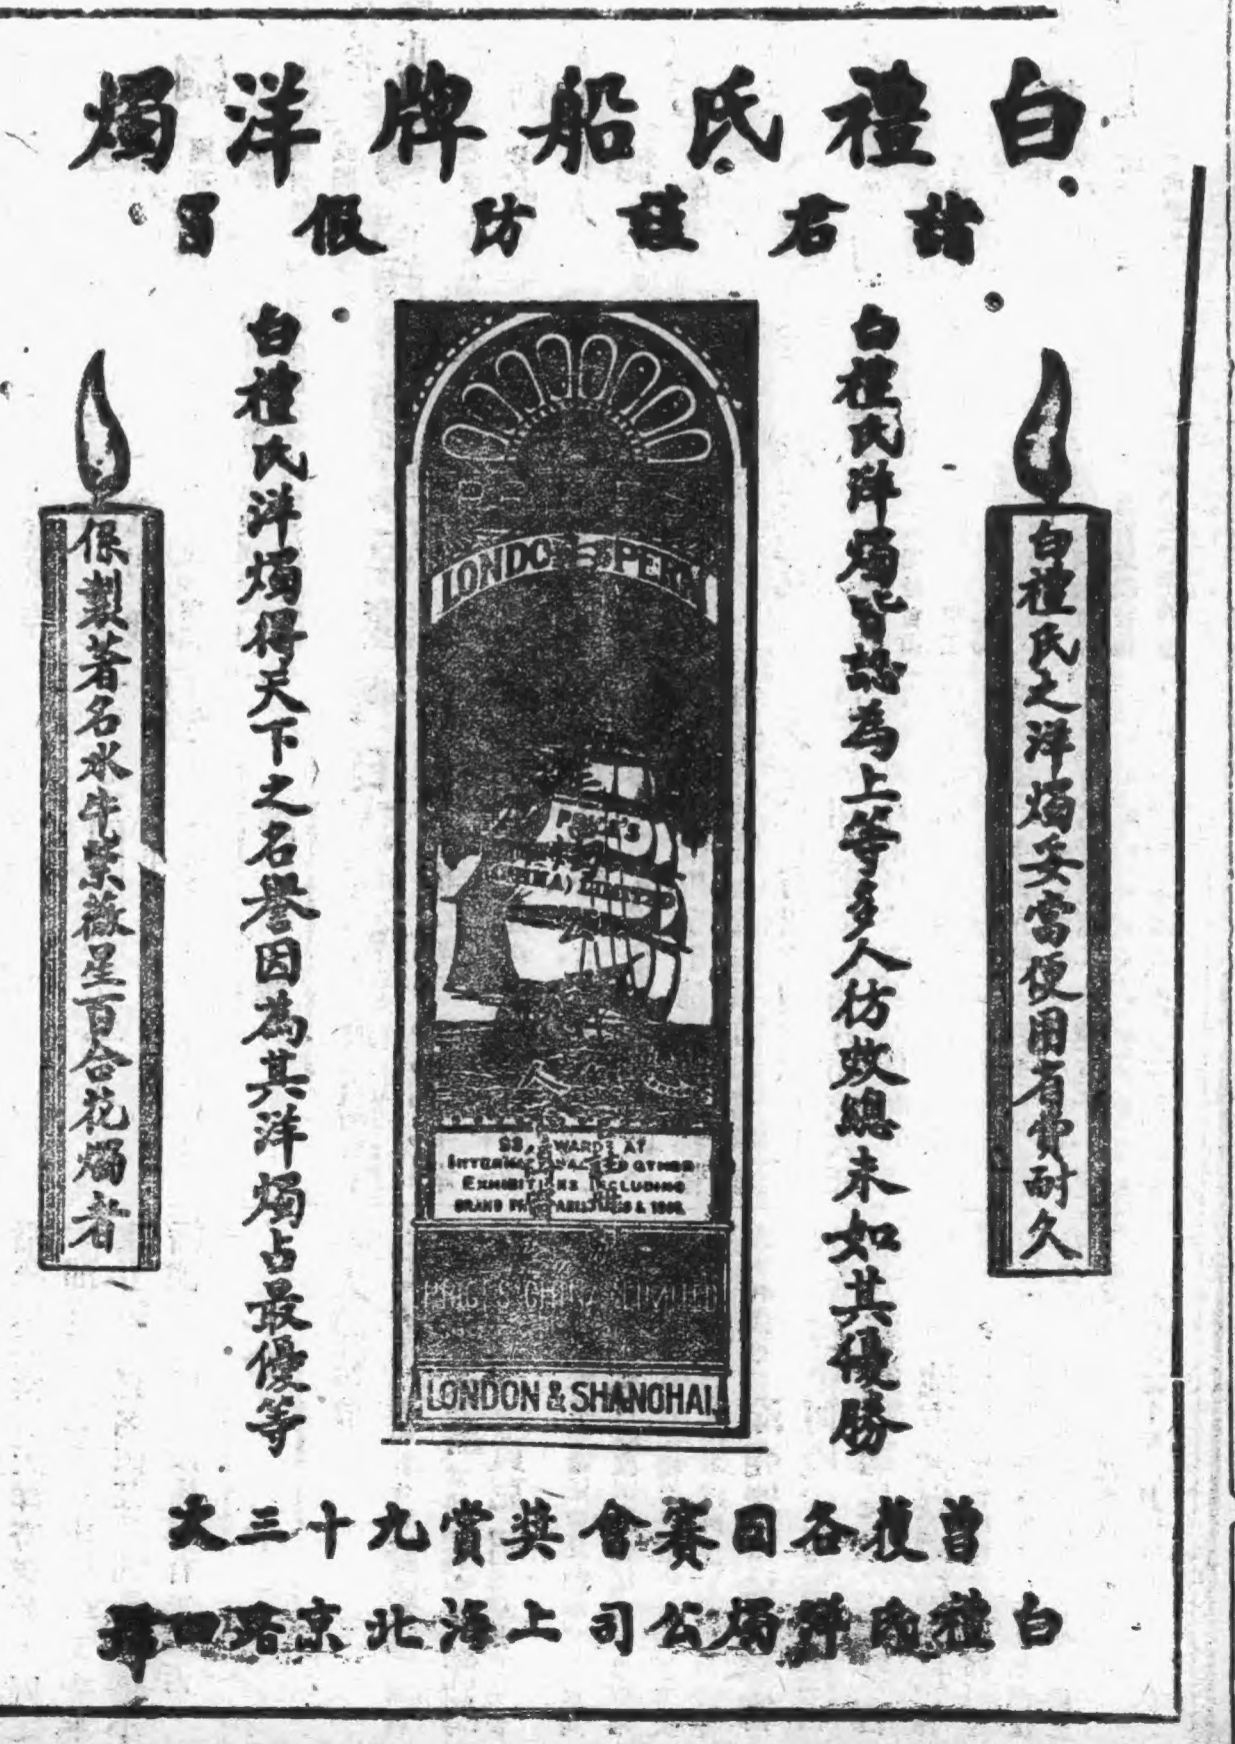 白禮氏船牌洋燭
諸君謹防假冒
白禮氏之洋燭妥當便用省費耐久
白禮氏洋燭皆認為上等多人彷效總未如其優勝
LONDON
PRICE'S
(CHINA) LIMITED
93 AWARDS AT
INTERNATIONAL AND OTHER
EXHIBITIONS INCLUDING
PRICE'S CHINA LIMITED
LONDON & SHANGHAI.
白禮氏洋燭得天下之名譽因為其洋燭占最優等
保製著名水牛紫薇星百合花燭者
曾獲各國賽會獎賞九十三次
白禮氏洋燭公司上海北京路四號